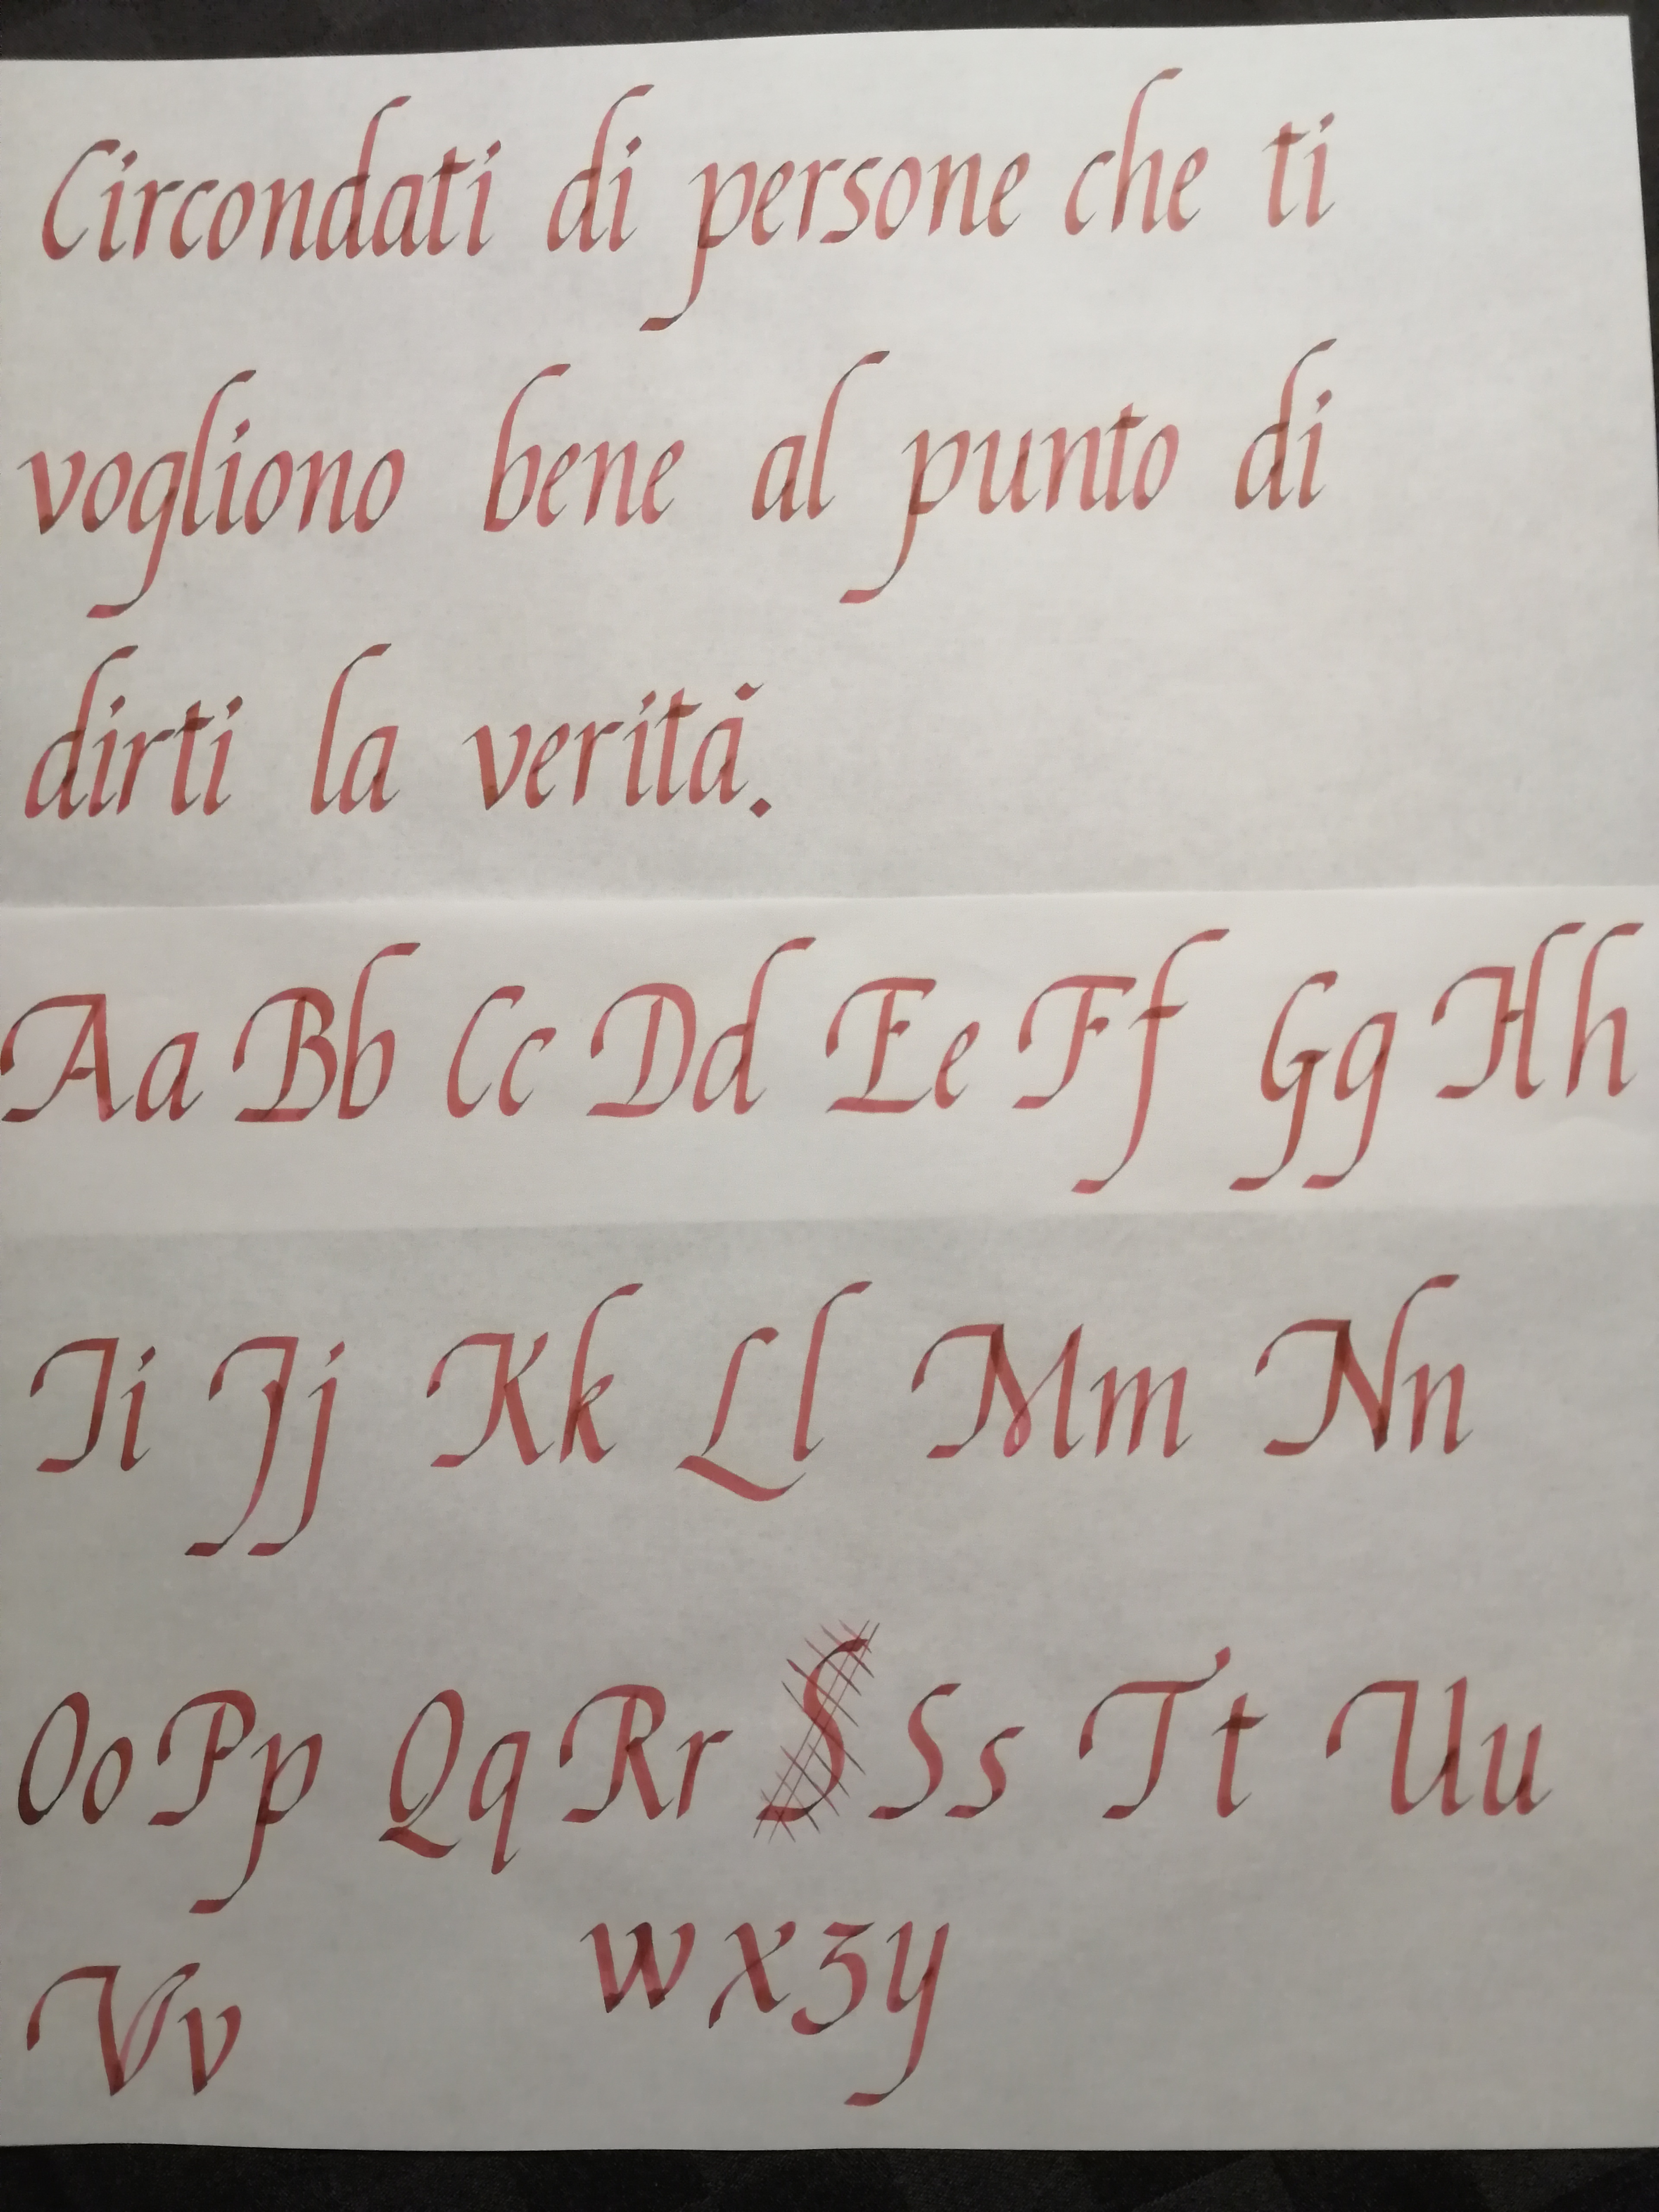 Circondati di persone che ti
vogliono bene al punto di
dirti la verità.
Aa Bb Cc Dd Ee Ff Gg Hh
Ii Jj Kk Ll Mm Nn
Oo Pp Qq Rr S Ss Tt Uu
Vv w x z y